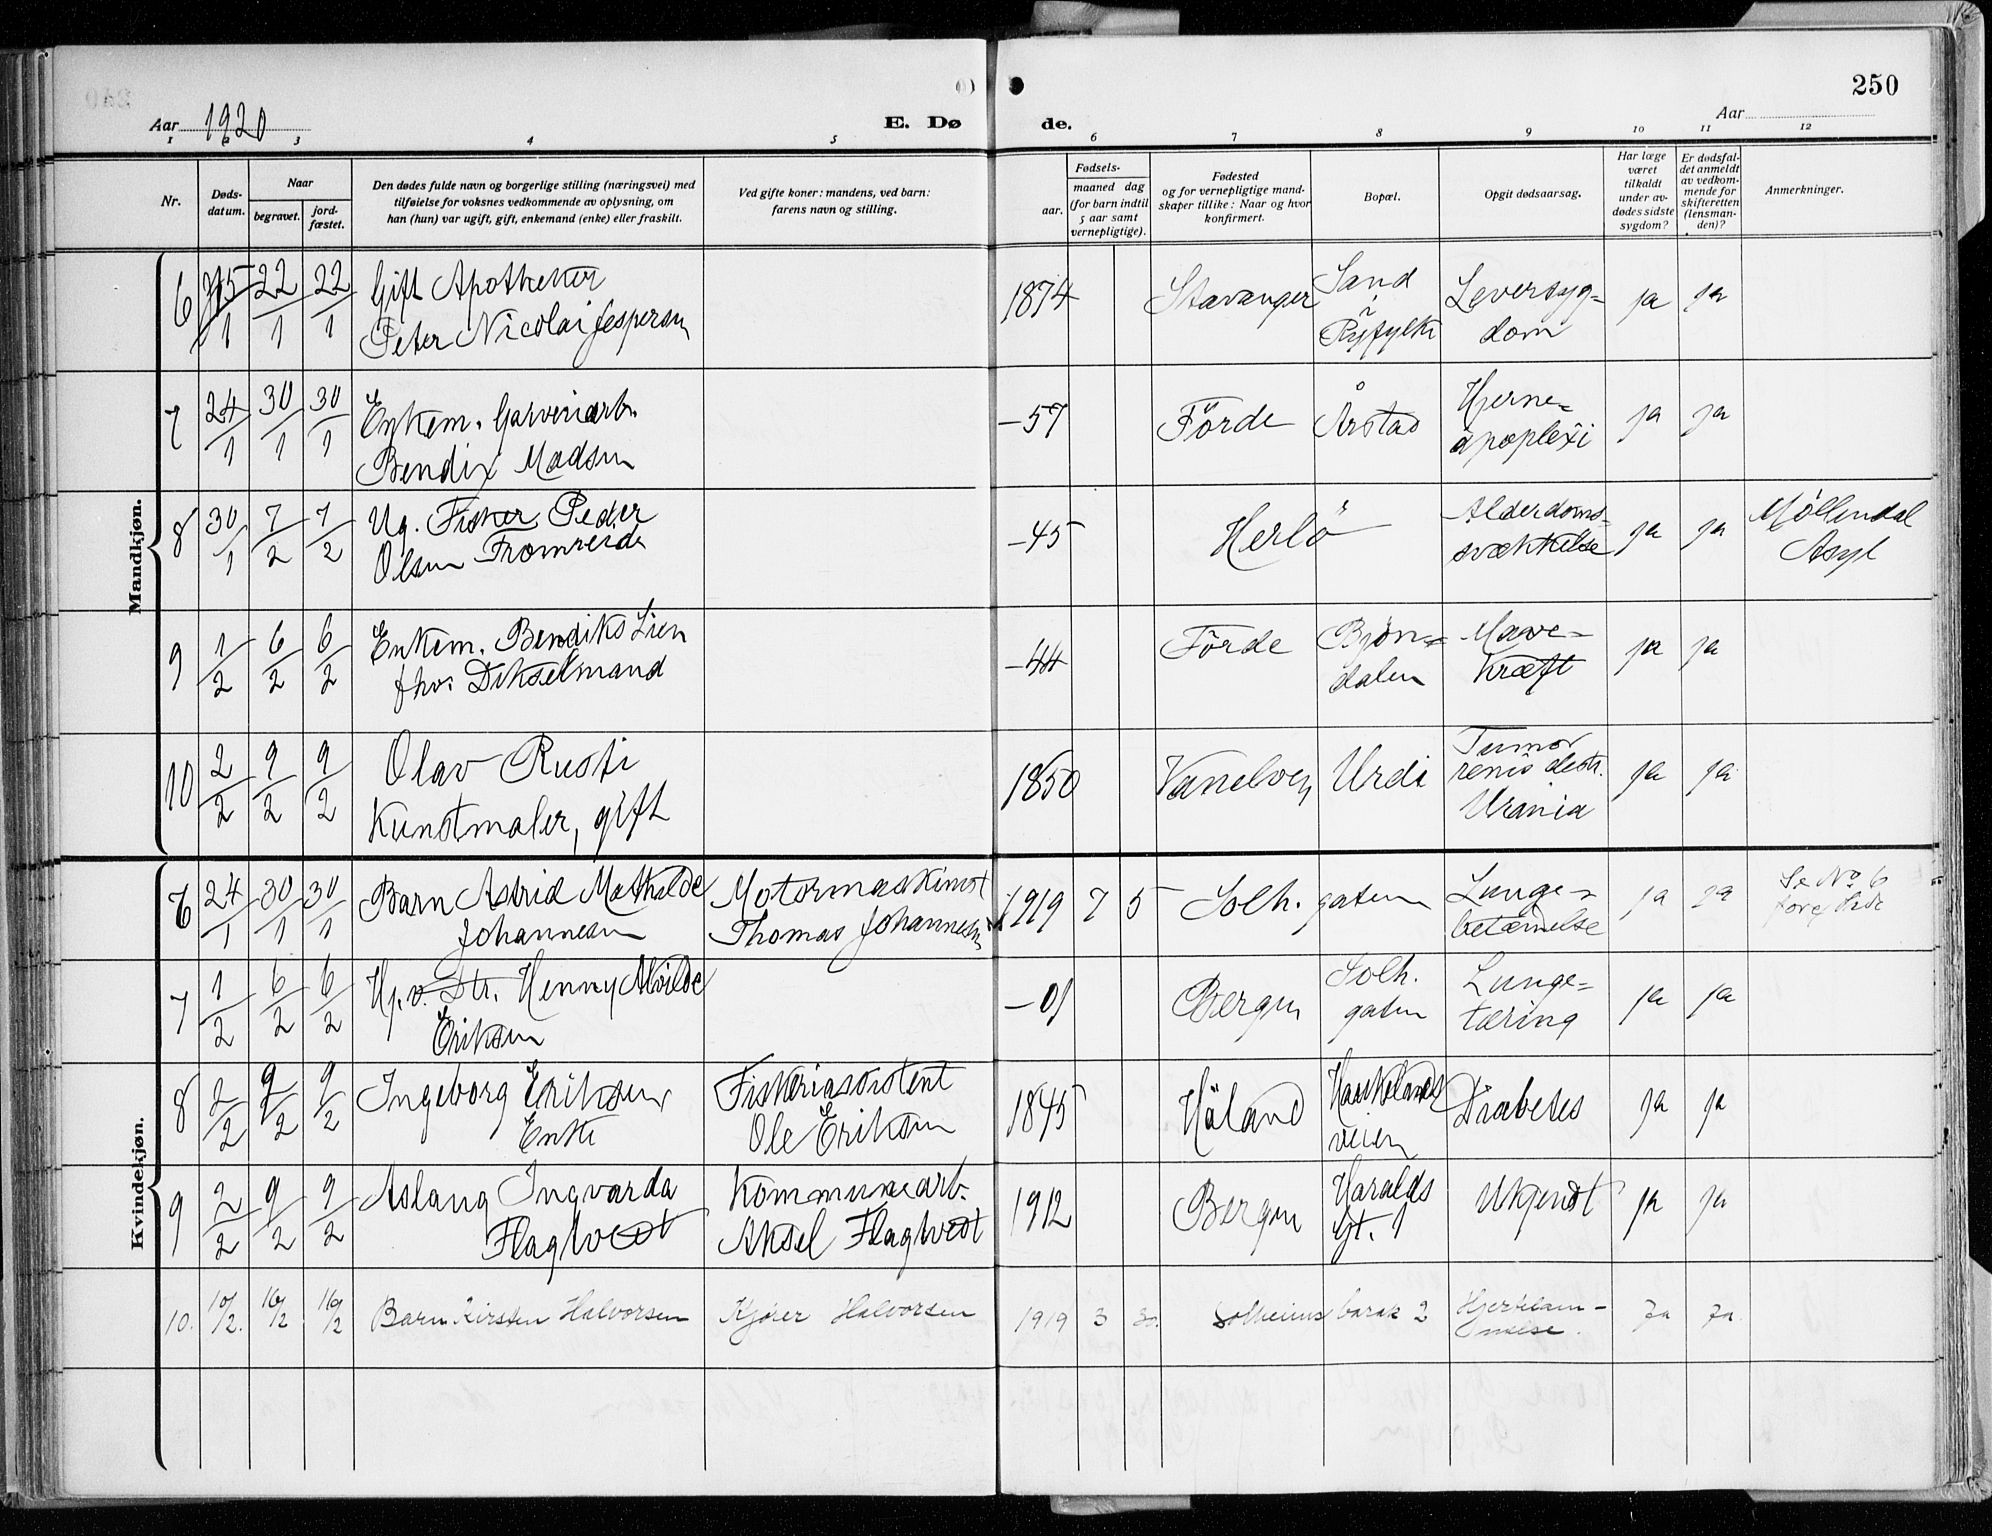 250
Aar 1920
E. Dø
de.
Aar
1 2 3 4 5 6 7 8 9 10 11 12
Nr.
Døds-
datum.
Naar
begravet.
jord-
fæstet.
Den dødes fulde navn og borgerlige stilling (næringsvei) med
tilføielse for voksnes vedkommende av oplysning, om
han (hun) var ugift, gift, enkemand (enke) eller fraskilt.
Ved gifte koner: mandens, ved barn:
farens navn og stilling.
Fødsels-
aar.
maaned dag
(for barn indtil
5 aar samt
vernepligtige).
Fødested
og for vernepligtige mand-
skaper tillike: Naar og hvor
konfirmert.
Bopæl.
Opgit dødsaarsag.
Har læge
været
tilkaldt
under av-
dødes sidste
sygdom?
Er dødsfal-
det anmeldt
av vedkom-
mende for
skifteretten
(lensman-
den)?
Anmerkninger.
Mandkjøn.
6 15/1 22/1 22/1 Gift Apotheker
Peter Nicolai Jespersen
1874 Stavanger Sand
i
Ryfylke
Leversyg-
dom
ja ja
7 24/1 30/1 30/1 Enkem. Garveriarb.
Bendix Madsen
-57 Förde Årstad Hjerne-
apoplexi
ja ja
8 30/1 7/2 7/2 Ug. Fisker Peder
Olsen Fromreide
-45 Herlö Alderdoms-
svækkelse
ja ja Møllendal
Asyl
9 1/2 6/2 6/2 Enkem. Bendiks Lien
fhv. Dikselmand
-44 Förde Bjön-
dalen
Mave-
kræft
ja ja
10 2/2 9/2 9/2 Olav Rusti
Kunstmaler, gift
1850 Vanelven Urdi Tumor
renis destr.
Urania
ja ja
Kvindekjøn.
6 24/1 30/1 30/1 Barn Astrid Mathilde
Johannesen
Motormaskinist
Thomas Johannesen
1919 7 5 Solh. gaten Lunge-
betændelse
ja ja Se No 6
foreg. side
7 1/2 6/2 6/2 Hj.v. Dtr. Henny Alvilde
Eriksen
-01 Bergen Solh.
gaten
Lunge-
tæring
ja ja
8 2/2 9/2 9/2 Ingeborg Eriksen
Enke
Fiskeriassistent
Ole Eriksen
1845 Håland Haukelands
veien
Diabetes ja ja
9 2/2 9/2 9/2 Aslaug Ingvarda
Flagtvedt
Kommunearb.
Aksel Flagtvedt
1912 Bergen Haralds
gt. 1
Ukjendt ja ja
10. 10/2. 16/2 16/2 Barn Kirsten Halvorsen Kjører Halvorsen 1919 3 30. Solheims barak 2 Hjerteklam-
melse.
Ja Ja.